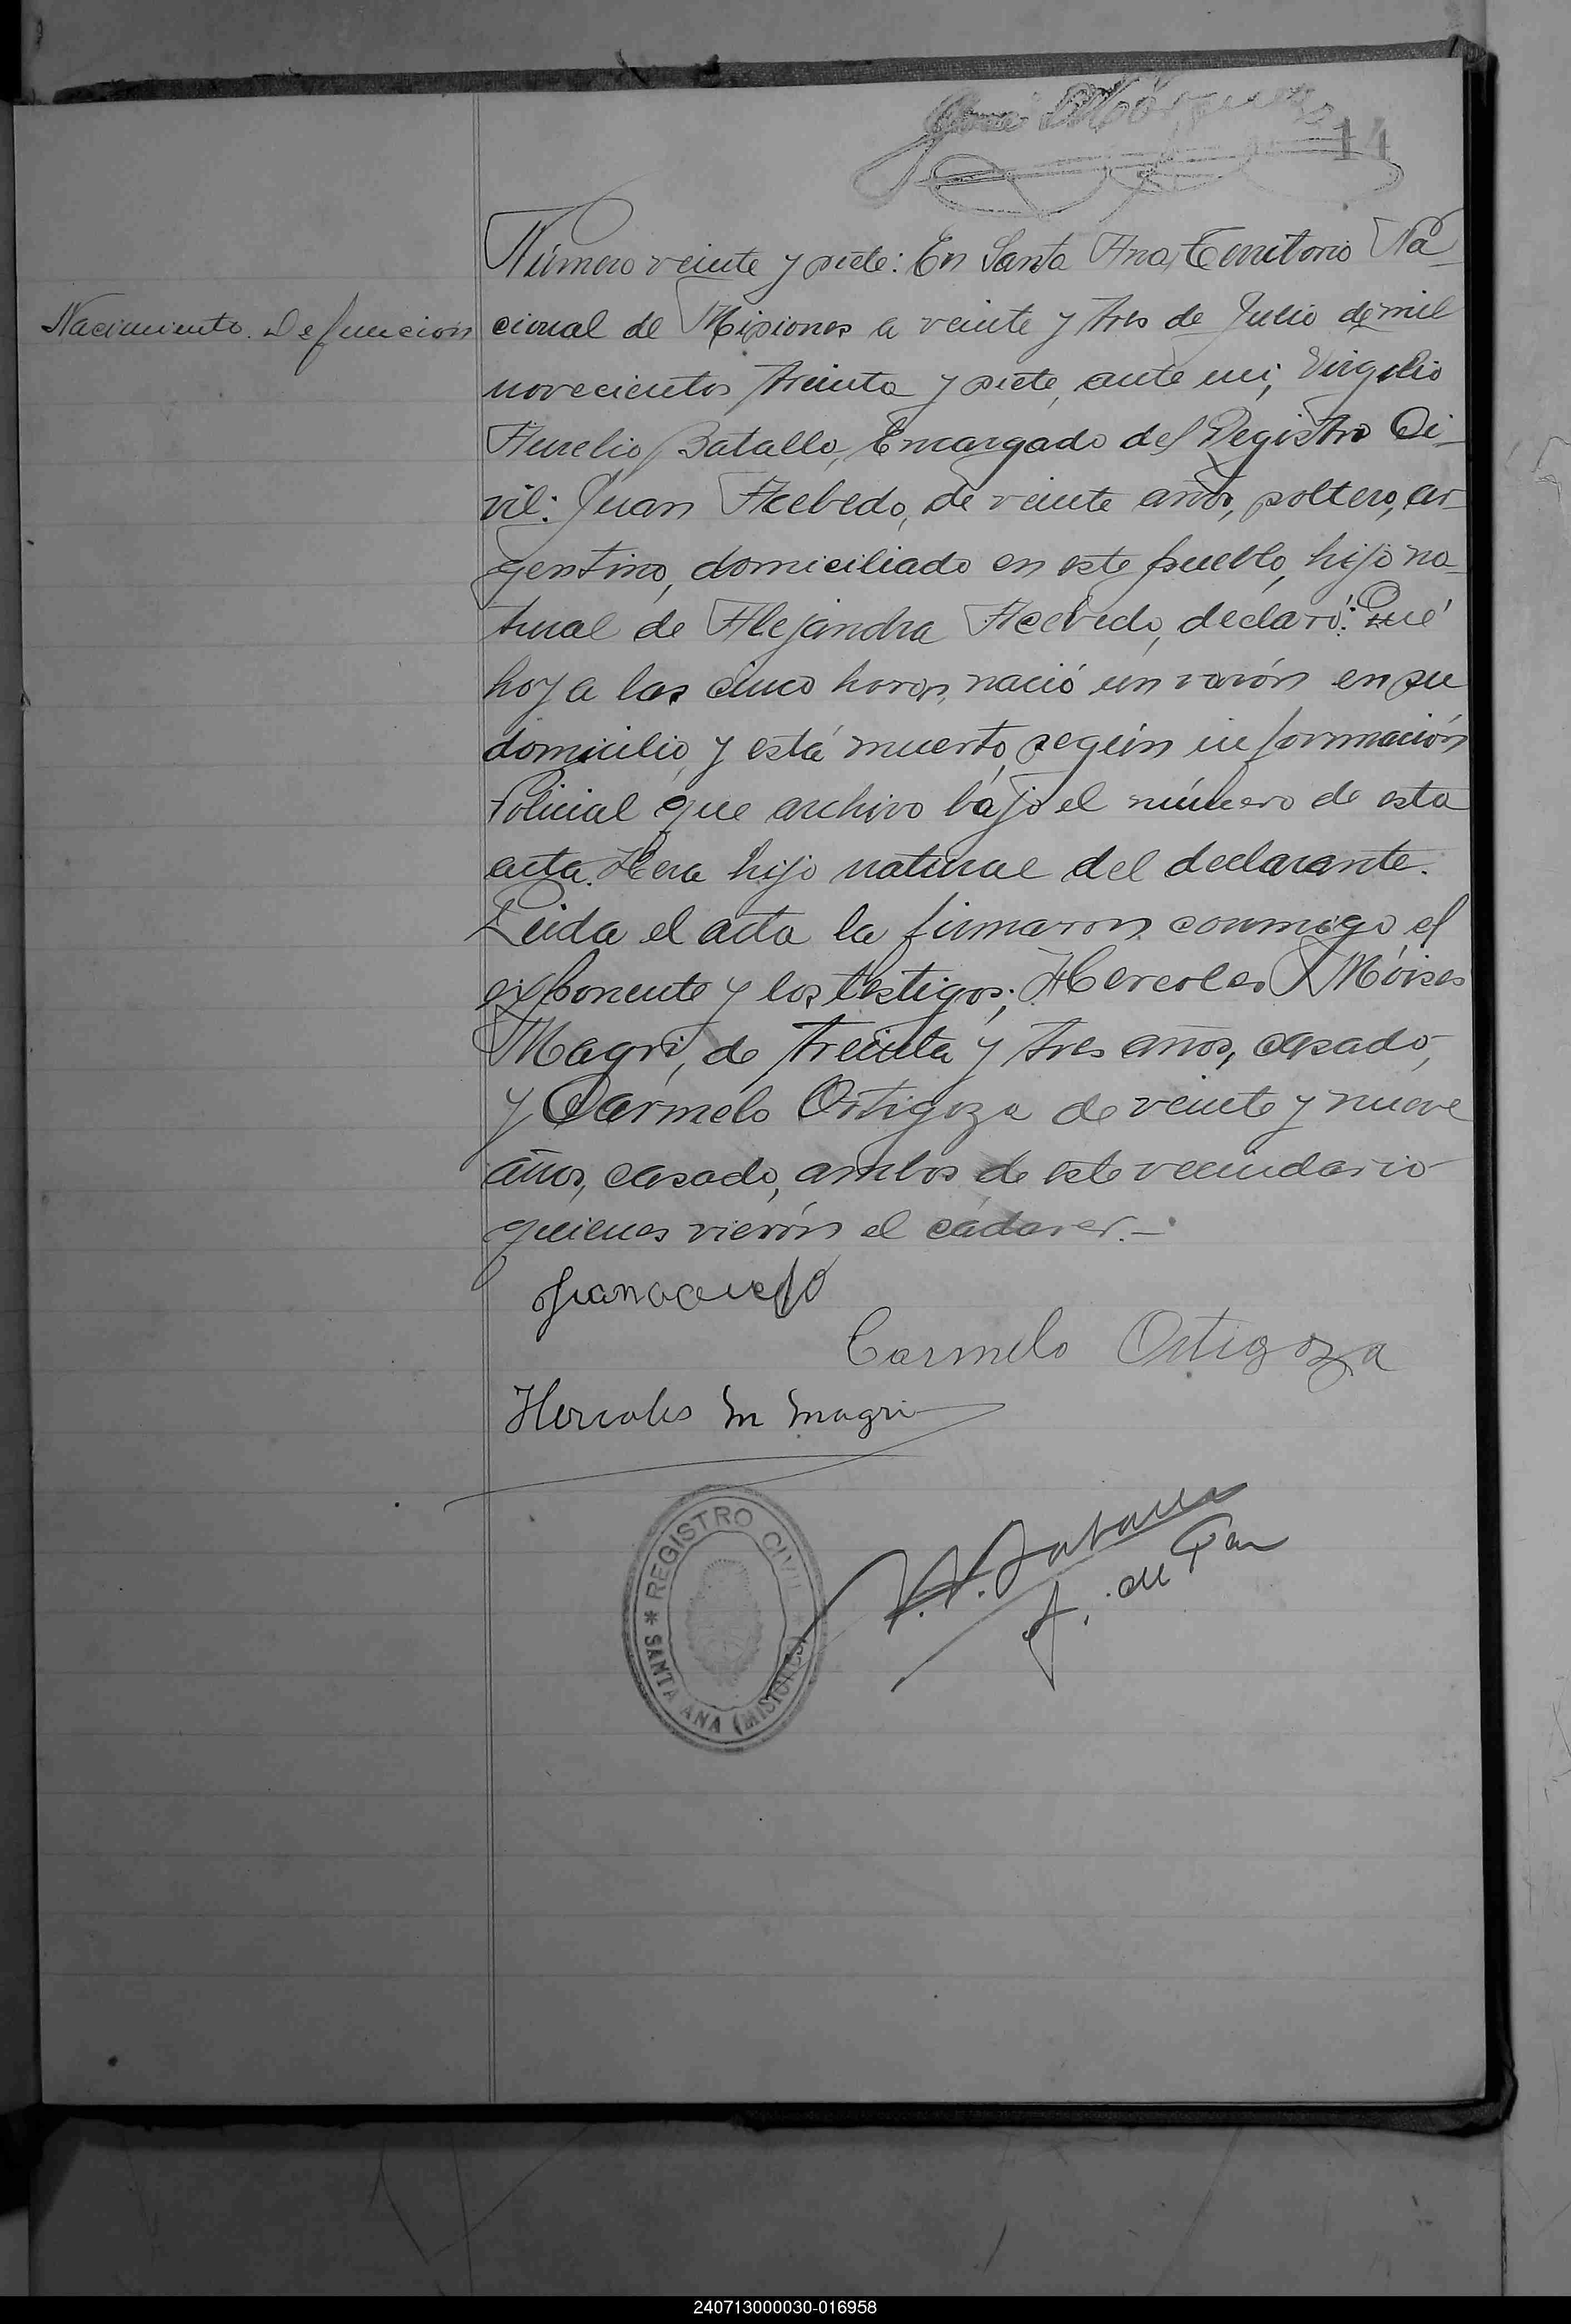 14
Número veinte y siete: En Santa Ana, Territorio Na-
Nacimiento. Defunción
cional de Misiones a veinte y tres de Julio de mil
novecientos treinta y siete, ante mi, Virgilio
Aurelio Batalla, Encargado del Registro Ci-
vil: Juan Acebedo, de veinte años, soltero, ar-
gentino, domiciliado en este pueblo, hijo na-
tural de Alejandra Acebedo, declaró: Qué
hoy a las cinco horas, nació un varón en su
domicilio, y está muerto, según información
Policial que archivo bájo el número de esta
acta. Hera hijo natural del declarante.
Leida el acta la firmaron conmigo el
exponente y los testigos; Hercoles Móises
Magri, de treinta y tres años, casado,
y Carmelo Ortigoza de veinte y nueve
años, casado, ambos de este vecindario
quienes vierón el cádaver.-
Juan acevedo
Carmelo Ortigoza
Hercoles M Magri
V. A. Batalla
J. de Paz
REGISTRO CIVIL
* SANTA ANA (MISIONES)
240713000030-016958